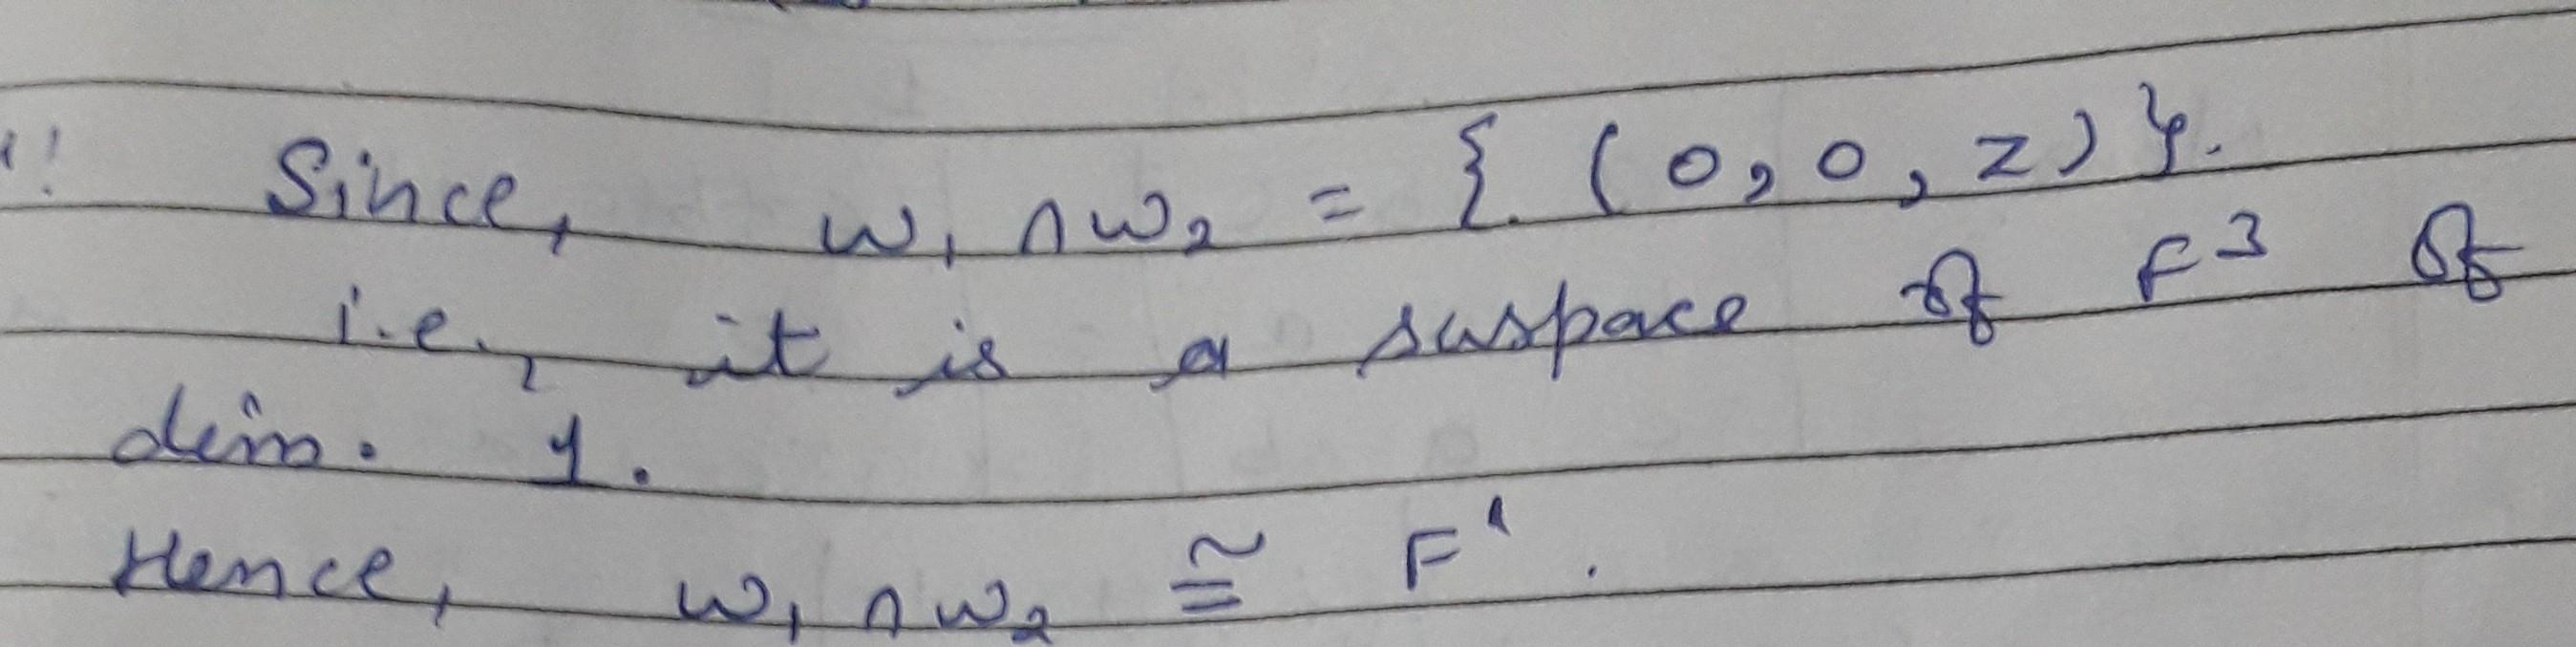 Since, W₁ ∩ W₂ = { (0, 0, z) }.
i.e., it is a suspace of F³ of
dim. 1.
Hence, W₁ ∩ W₂ ≅ F¹.